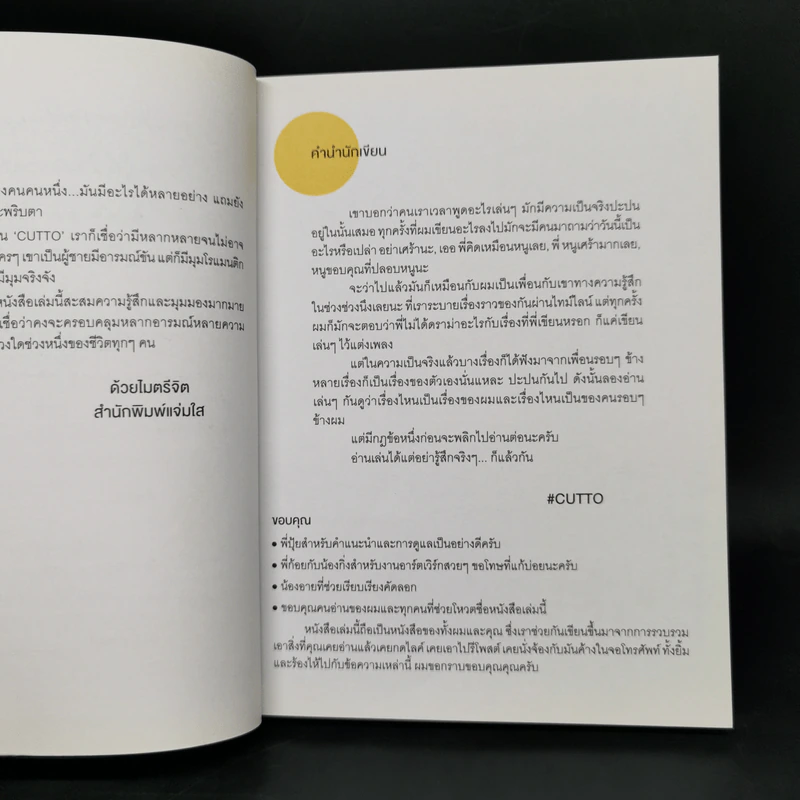 งคนคนหนึ่ง...มันมีอะไรได้หลายอย่าง แถมยัง
ะพริบตา
น 'CUTTO' เราก็เชื่อว่ามีหลากหลายจนไม่อาจ
ครๆ เขาเป็นผู้ชายมีอารมณ์ขัน แต่ก็มีมุมโรแมนติก
มีมุมจริงจัง
หนังสือเล่มนี้สะสมความรู้สึกและมุมมองมากมาย
เชื่อว่าคงจะครอบคลุมหลากอารมณ์หลายความ
วงใดช่วงหนึ่งของชีวิตทุกๆ คน
ด้วยไมตรีจิต
สำนักพิมพ์แจ่มใส
คำนำนักเขียน
เขาบอกว่าคนเราเวลาพูดอะไรเล่นๆ มักมีความเป็นจริงปะปน
อยู่ในนั้นเสมอ ทุกครั้งที่ผมเขียนอะไรลงไปมักจะมีคนมาถามว่าวันนี้เป็น
อะไรหรือเปล่า อย่าเศร้านะ, เออ พี่คิดเหมือนหนูเลย, พี่ หนูเศร้ามากเลย,
หนูขอบคุณที่ปลอบหนูนะ
จะว่าไปแล้วมันก็เหมือนกับผมเป็นเพื่อนกับเขาทางความรู้สึก
ในช่วงช่วงนึงเลยนะ ที่เราระบายเรื่องราวของกันผ่านไทม์ไลน์ แต่ทุกครั้ง
ผมก็มักจะตอบว่าพี่ไม่ได้ดราม่าอะไรกับเรื่องที่พี่เขียนหรอก ก็แค่เขียน
เล่นๆ ไว้แต่งเพลง
แต่ในความเป็นจริงแล้วบางเรื่องก็ได้ฟังมาจากเพื่อนรอบๆ ข้าง
หลายเรื่องก็เป็นเรื่องของตัวเองนั่นแหละ ปะปนกันไป ดังนั้นลองอ่าน
เล่นๆ กันดูว่าเรื่องไหนเป็นเรื่องของผมและเรื่องไหนเป็นของคนรอบๆ
ข้างผม
แต่มีกฎข้อหนึ่งก่อนจะพลิกไปอ่านต่อนะครับ
อ่านเล่นได้แต่อย่ารู้สึกจริงๆ... ก็แล้วกัน
#CUTTO
ขอบคุณ
• พี่ปุ้ยสำหรับคำแนะนำและการดูแลเป็นอย่างดีครับ
• พี่ก้อยกับน้องกิ่งสำหรับงานอาร์ตเวิร์กสวยๆ ขอโทษที่แก้บ่อยนะครับ
• น้องอายที่ช่วยเรียบเรียงคัดลอก
• ขอบคุณคนอ่านของผมและทุกคนที่ช่วยโหวตชื่อหนังสือเล่มนี้
หนังสือเล่มนี้ถือเป็นหนังสือของทั้งผมและคุณ ซึ่งเราช่วยกันเขียนขึ้นมาจากการรวบรวม
เอาสิ่งที่คุณเคยอ่านแล้วเคยกดไลค์ เคยเอาไปรีโพสต์ เคยนั่งจ้องกับมันค้างในจอโทรศัพท์ ทั้งยิ้ม
และร้องไห้ไปกับข้อความเหล่านี้ ผมขอกราบขอบคุณคุณครับ